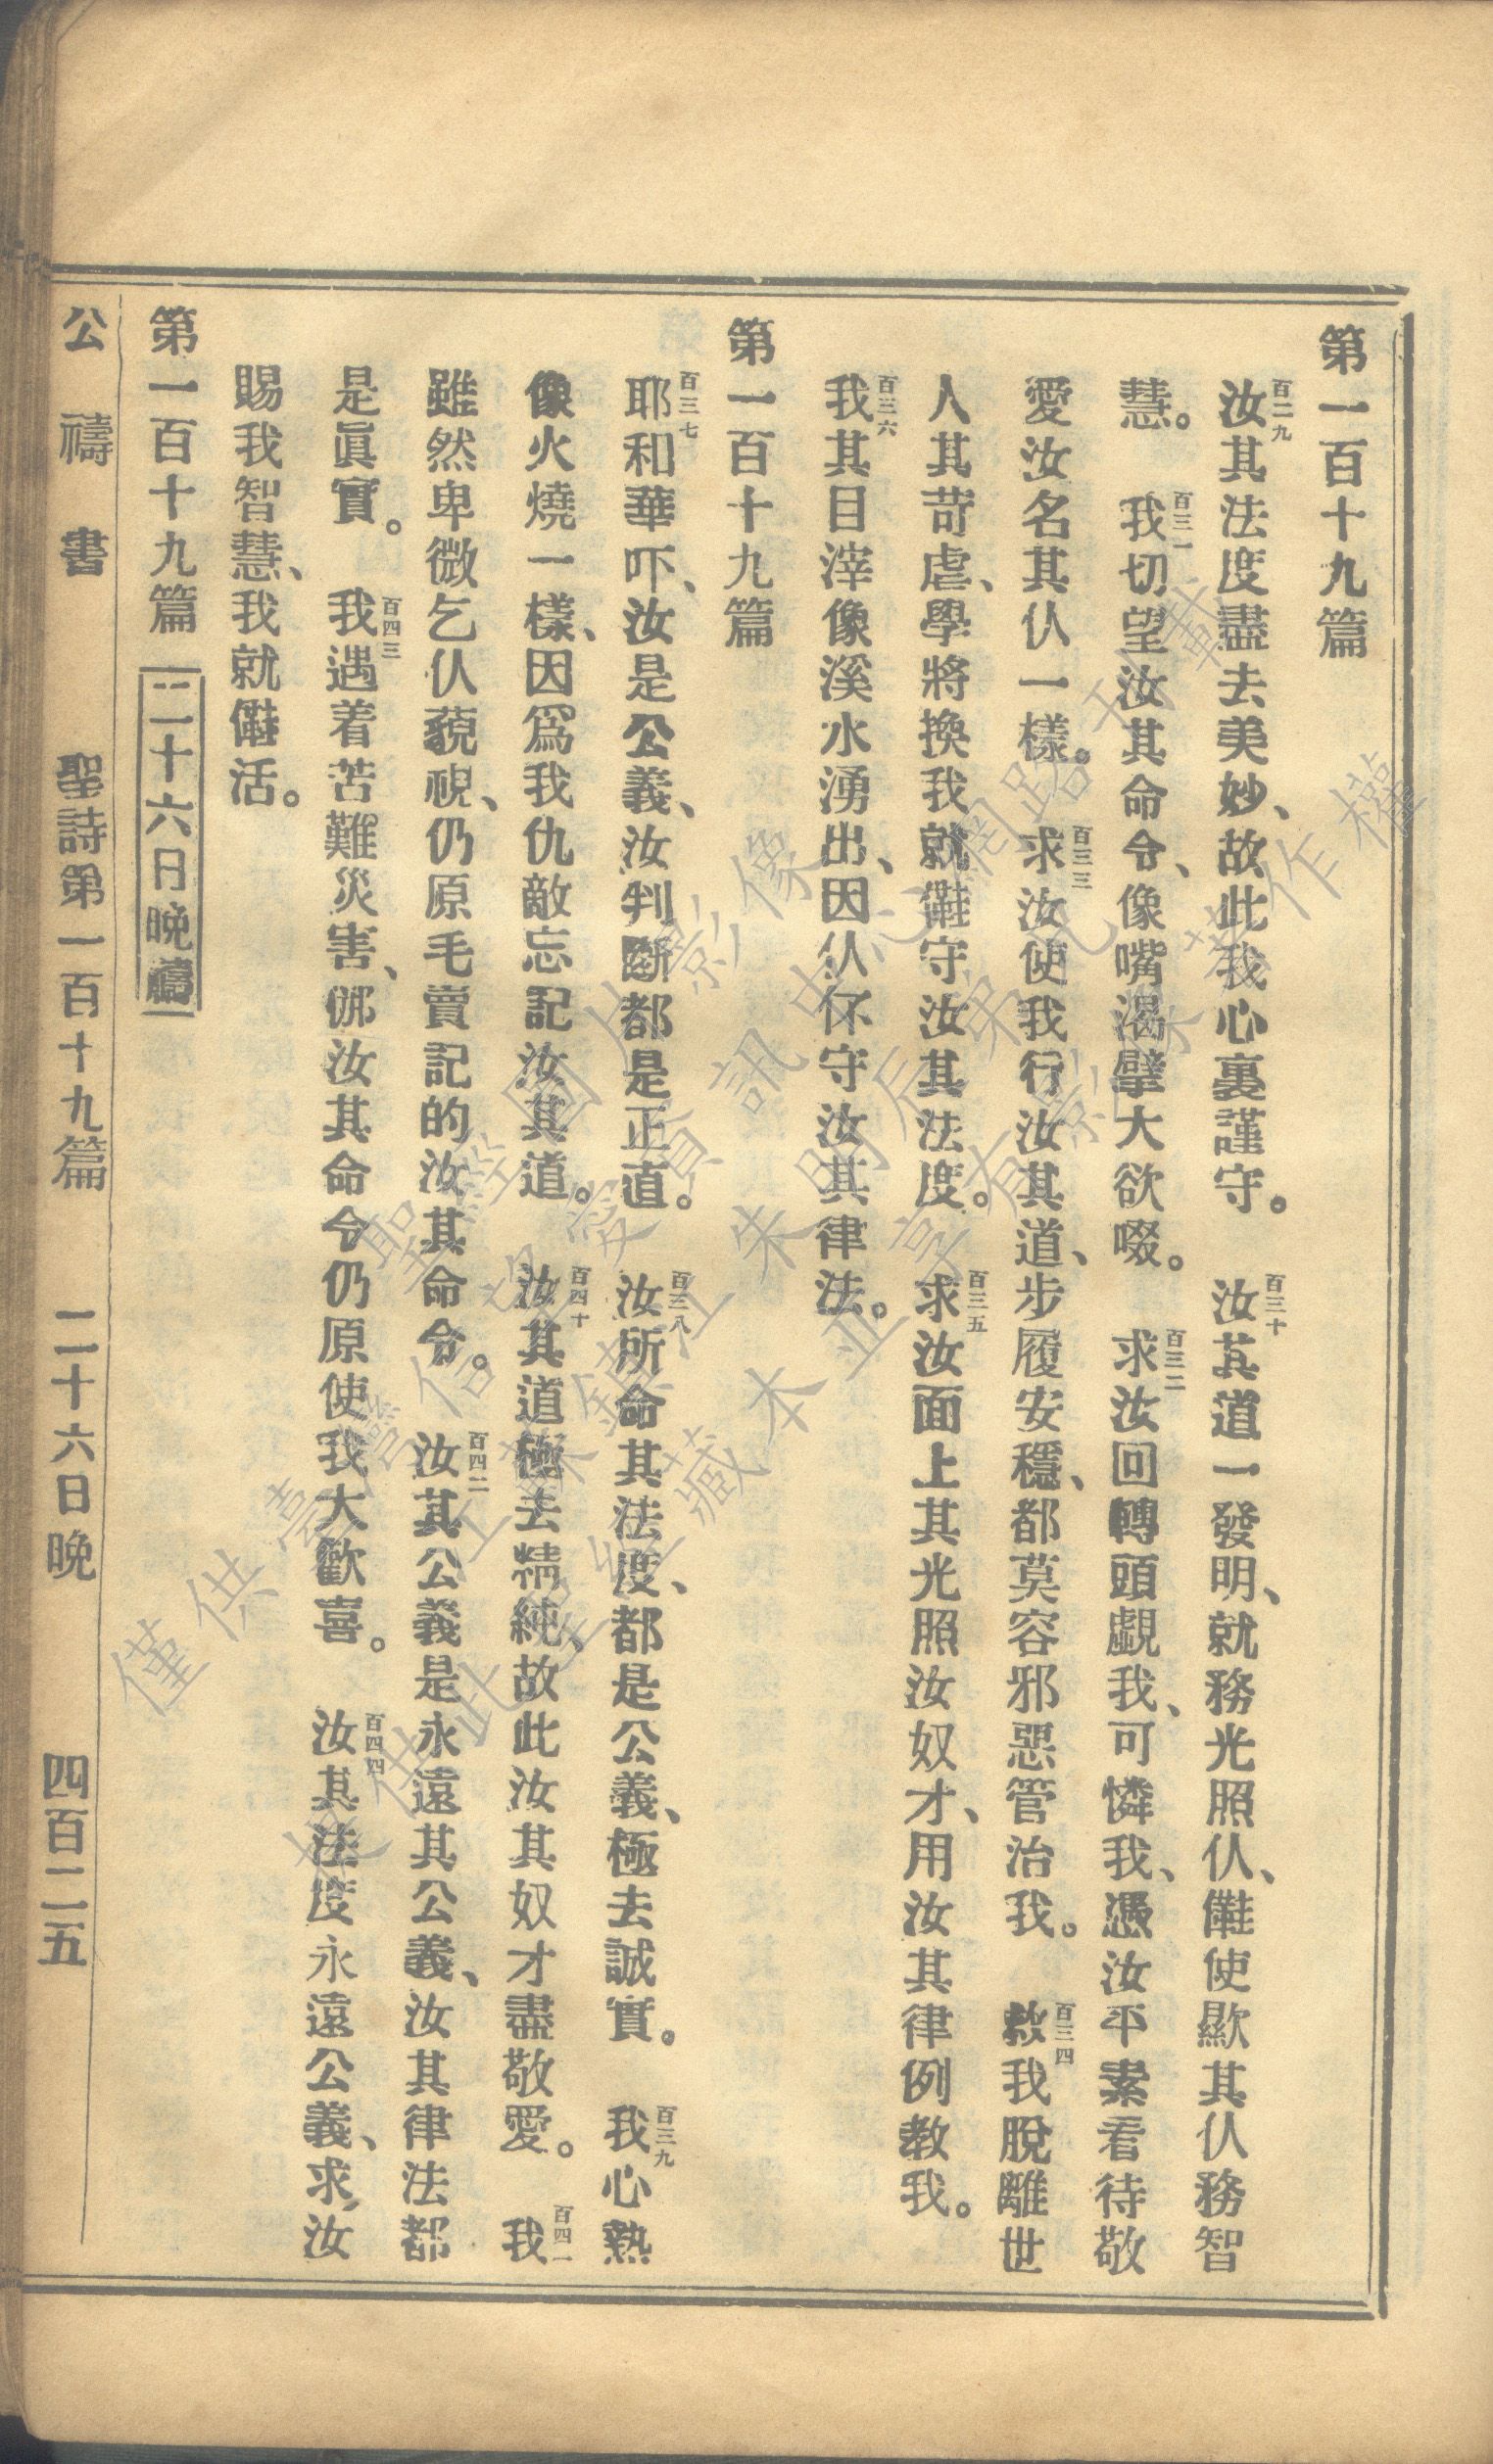 第一百十九篇
百二九汝其法度盡去美妙、故此我心裏謹守。百三十汝其道一發明、就務光照伩、𣍐使顯其伩務智
慧。百三一我切望汝其命令、像嘴渴擘大欲啜。百三二求汝回轉頭覷我、可憐我、憑汝平素看待敬
愛汝名其伩一樣。百三三求汝使我行汝其道、步履安穩、都莫容邪惡管治我。百三四救我脫離世
人其苛虐、學將換我就𣍐守汝其法度。百三五求汝面上其光照汝奴才、用汝其律例教我。
百三六我其目滓像溪水湧出、因伩伓守汝其律法。
第一百十九篇
百三七耶和華吓、汝是公義、汝判斷都是正直。百三八汝所命其法度、都是公義、極去誠實。百三九我心熱
像火燒一樣、因爲我仇敵忘記汝其道。百四十汝其道極去精純、故此汝其奴才盡敬愛。百四一我
雖然卑微乞伩藐視、仍原毛賣記的汝其命令。百四二汝其公義是永遠其公義、汝其律法都
是眞實。百四三我遇着苦難災害、𠆧汝其命令仍原使我大歡喜。百四四汝其法度永遠公義、求汝
賜我智慧、我就𠆧活。
第一百十九篇 二十六日晚禱
公禱書 聖詩第一百十九篇 二十六日晚 四百二五
僅供臺灣聖經圖片影像
信望愛資訊中心網路刊載